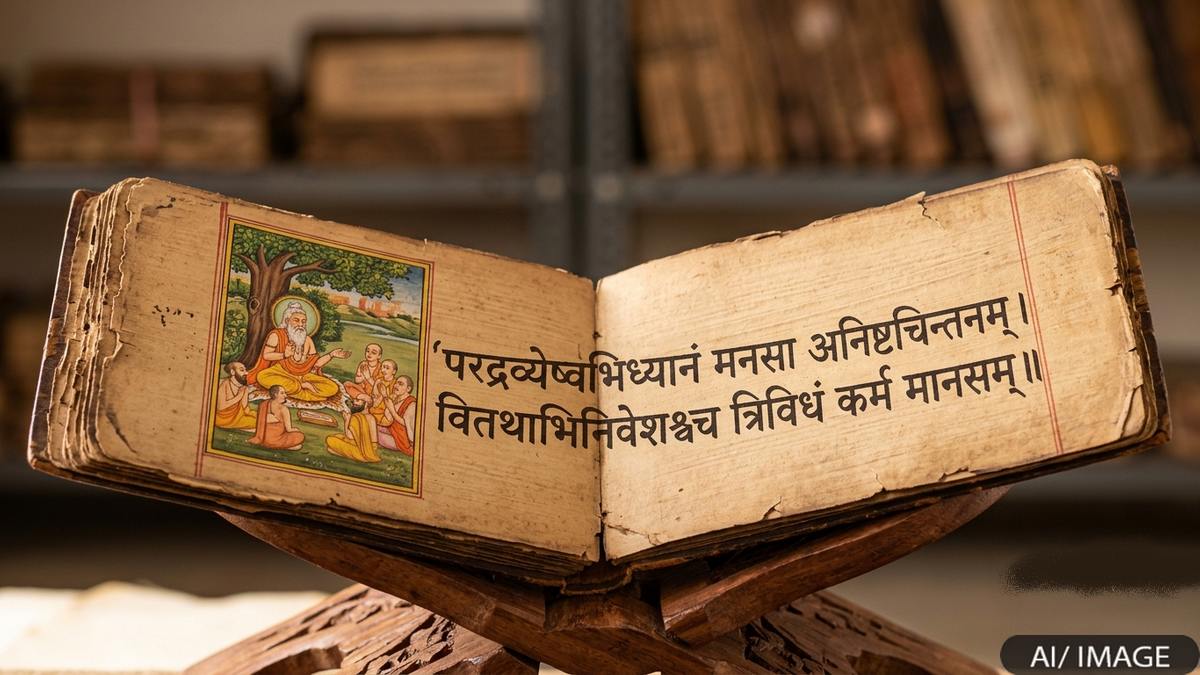 ‘परद्रव्येष्वभिध्यानं मनसा अनिष्टचिन्तनम्।
वितथाभिनिवेशश्चच त्रिविधं कर्म मानसम्॥
AI/ IMAGE